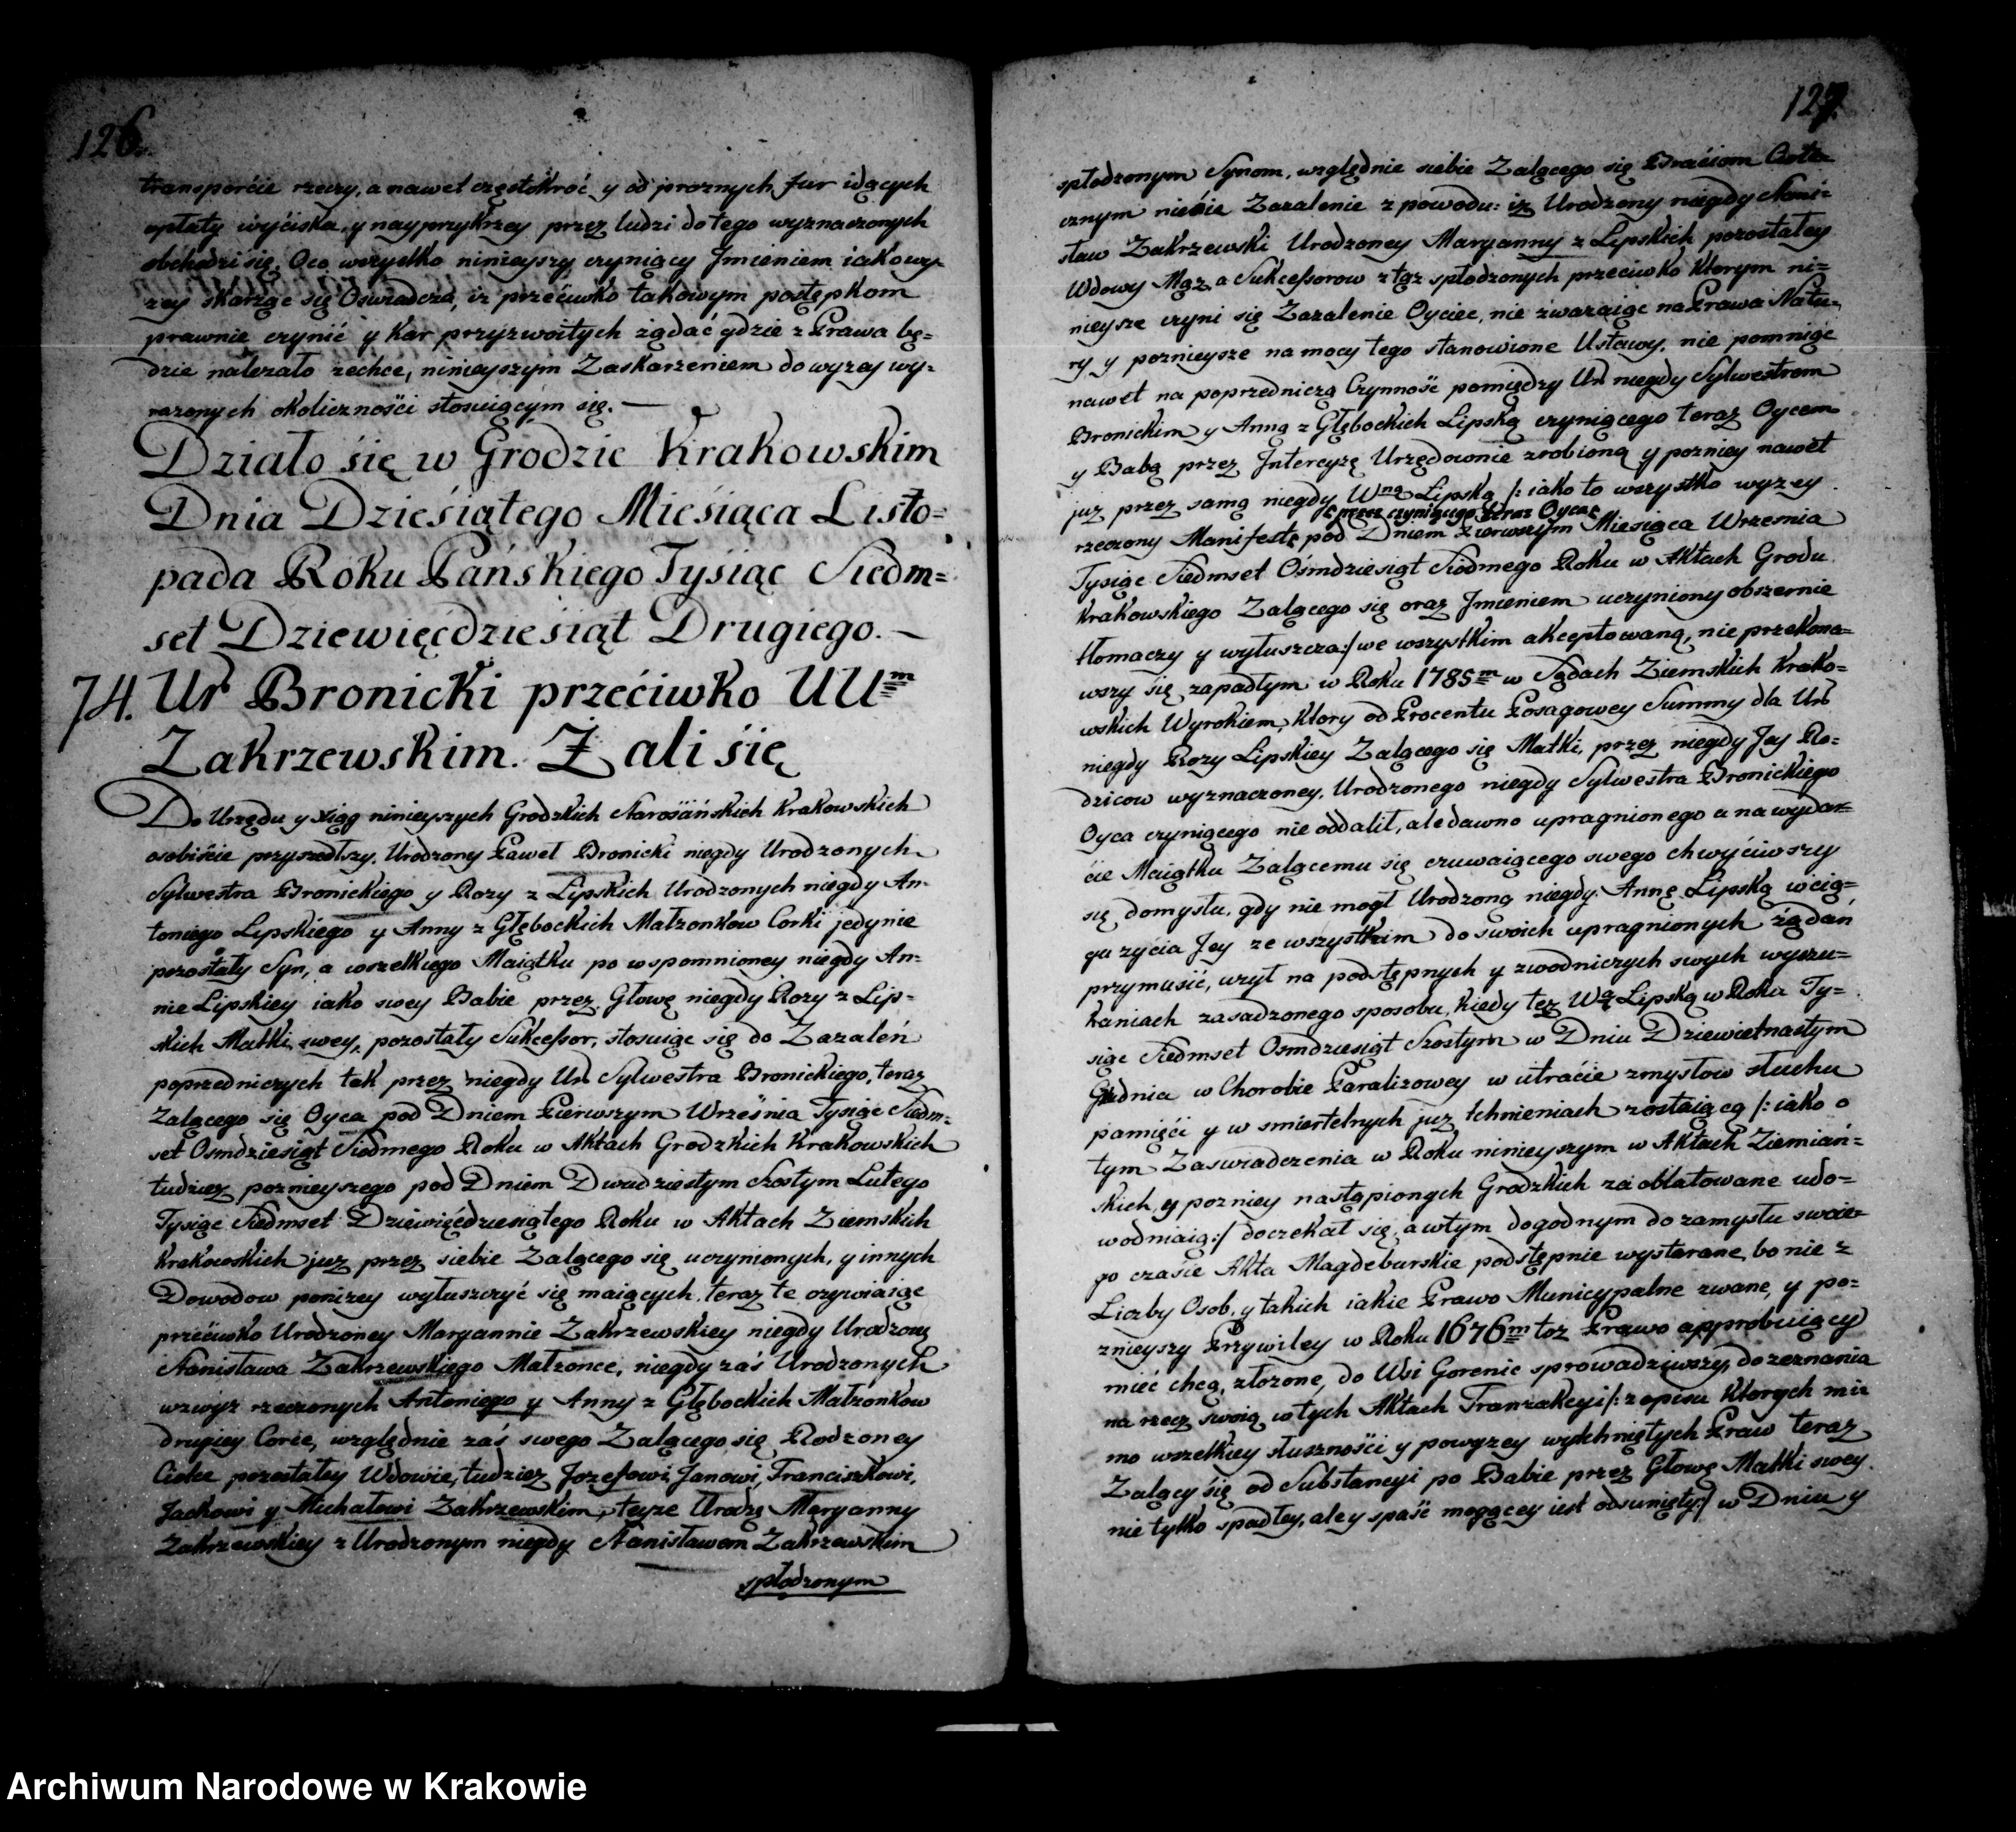 126.
transporcie rzeczy, a nawet częstokroć y od proznych fur idących
opłaty wyciska, y nayprzykrzey przez ludzi do tego wyznaczonych
obchodzi się. Oco wszystko ninieyszy czyniący Jmieniem iakowy-
zey skarząc się Oswiadcza, iz przećiwko takowym postępkom
prawnie czynić y Kar przyzwoitych ządać gdzie z Prawa bę=
dzie nalezało zechce, ninieyszym Zaskarzeniem do wyzey wy=
razonych okoliczności stosuiącym się. —
Działo się w Grodzie Krakowskim
Dnia Dziesiątego Miesiąca Listo=
pada Roku Pańskiego Tysiąc Siedm=
set Dziewięćdziesiąt Drugiego. —
74. Ur Bronicki przećiwko UUm
Zakrzewskim. Żali się
Do Urzędu y xiąg ninieyszych Grodzkich Starościńskich Krakowskich
osobiście przyszedłszy. Urodzony Paweł Bronicki niegdy Urodzonych
Sylwestra Bronickiego y Rozy z Lipskich Urodzonych niegdy An-
toniego Lipskiego y Anny z Głębockich Małzonkow Corki jedynie
pozostały Syn, a wszelkiego Maiątku po wspomnioney niegdy An=
nie Lipskiey iako swey Babie przez Głowę niegdy Rozy z Lip=
skich Matki swey, pozostały Sukcessor, stosuiąc się do Zazaleń
poprzedniczych tak przez niegdy Ur Sylwestra Bronickiego, teraz
Zalącego się Oyca pod Dniem Pierwszym Września Tysiąc Siedm=
set Osmdziesiąt Siodmego Roku w Aktach Grodzkich Krakowskich
tudziez poznieyszego pod Dniem Dwudziestym Szostym Lutego
Tysiąc Siedmset Dziewięćdziesiątego Roku w Aktach Ziemskich
Krakowskich juz przez siebie Zalącego się uczynionych, y innych
Dowodow ponizey wyłuszczyć się maiących, teraz te ozywiaiąc
przećiwko Urodzoney Maryannie Zakrzewskiey niegdy Urodzong
Stanisława Zakrzewskiego Małzonce, niegdy zaś Urodzonych
wzwyz rzeczonych Antoniego y Anny z Głębockich Małzonkow
drugiey Corce, względnie zaś swego Zalącego się Rodzoney
Ciotce pozostałey Wdowie, tudziez Jozefowi, Janowi, Franciszkowi,
Jackowi y Michałowi Zakrzewskim, teyze Urodzę Maryanny
Zakrzewskiey z Urodzonym niegdy Stanisławem Zakrzewskim
spłodzonym
127.
spłodzonym Synom, względnie siebie Zalącego się Braciom Ciote-
cznym niesie Zazalenie z powodu: iz Urodzony niegdy Stani=
sław Zakrzewski Urodzoney Maryanny z Lipskich pozostałey
Wdowy Mąz a Sukcessorow z tąz spłodzonych przeciwko ktorym ni=
nieysze czyni się Zazalenie Oyciec, nie zwazaiąc na Prawa Natu=
ry y poznieysze na mocy tego stanowione Ustawy, nie pomniąc
nawet na poprzedniczą Czynność pomiędzy Ur niegdy Sylwestrem
Bronickim y Anną z Głębockich Lipską czyniącego teraz Oycem
y Babą przez Jntercyzę Urzędownie zrobioną y pozniey nawet
juz przez samą niegdy Wną Lipską /: iako to wszystko wyzey
przez czyniącego teraz Oyca
rzeczony Manifest pod Dniem Pierwszym Miesiąca Wrzesnia
Tysiąc Siedmset Ośmdziesiąt Siodmego Roku w Aktach Grodu
Krakowskiego Zalącego się oraz Jmieniem uczyniony obszernie
tłomaczy y wyłuszcza:/ we wszystkim akceptowaną, nie przekona=
wszy się zapadłym w Roku 1785m w Sądach Ziemskich Krako=
wskich Wyrokiem, ktory od Procentu Posagowey Summy dla Ur
niegdy Rozy Lipskiey Zalącego się Matki, przez niegdy Jey Ro=
dzicow wyznaczoney, Urodzonego niegdy Sylwestra Bronickiego
Oyca czyniącego nie oddalił, ale dawno upragnionego a na wydar=
cie Maiątku Zalącemu się czuwaiącego swego chwyćiwszy
się domysłu, gdy nie mogł Urodzoną niegdy Annę Lipską wciąg=
gu zycia Jey ze wszystkim do swoich upragnionych żądań
przymusić, uzył na podstępnych y zwodniczych swych wyszu=
kaniach zasadzonego sposobu, kiedy tęz Wą Lipską w Roku Ty=
siąc Siedmset Osmdziesiąt Szostym w Dniu Dziewietnastym
Grudnia w Chorobie Paralizowey w utracie zmysłow słuchu
pamięci y w smiertelnych juz tchnieniach zostaiącą /: iako o
tym Zaswiadczenia w Roku ninieyszym w Aktach Ziemiań=
skich, y pozniey nastąpionych Grodzkich zaoblatowane udo=
wodniaią:/ doczekał się, a w tym dogodnym do zamysłu swoie=
go czasie Akta Magdeburskie podstępnie wystarane, bo nie z
Liczby Osob, y takich iakie Prawo Municypalne zwane, y po=
znieyszy Przywiley w Roku 1676m toz Prawo approbuiący
mieć chcą, złozone, do Wsi Gorenic sprowadziwszy, do zeznania
na rzecz swoią w tych Aktach Tranzakcyi /: z opisu ktorych mi=
mo wszelkiey słuszności y powyzey wytchniętych Praw teraz
Zalący się od Substancyi po Babie przez Głowę Matki swey
nie tylko spadłey, ale y spaść mogącey iest odsunięty:/ w Dniu y
Archiwum Narodowe w Krakowie